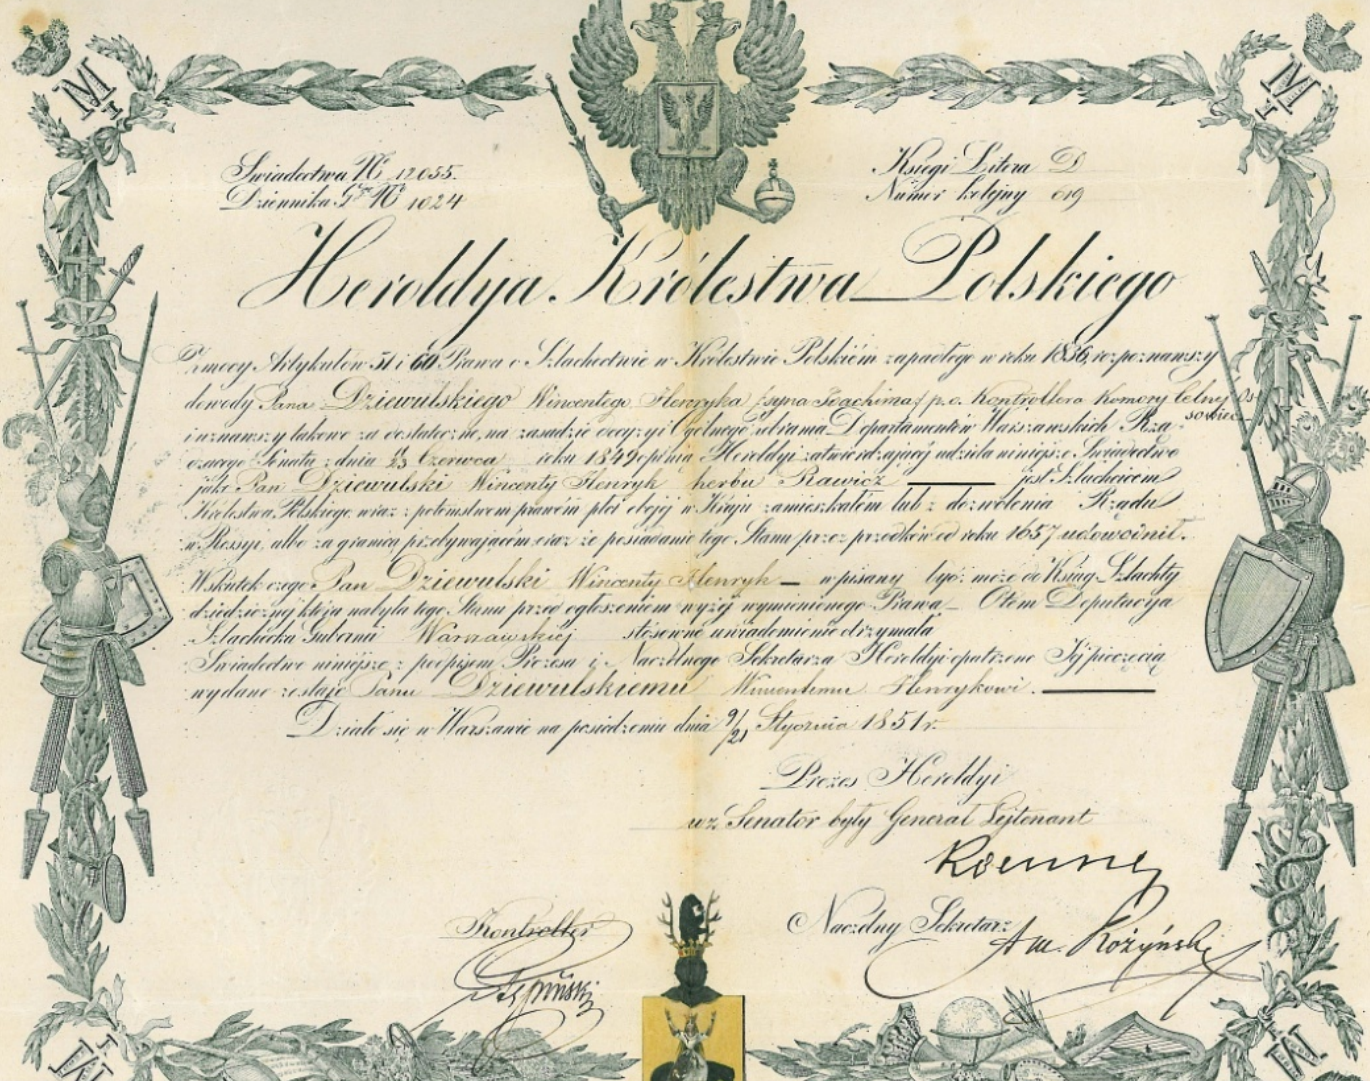 Świadectwa Nº 12055.
Dziennika Gº Nº 1024
Księgi Litera D
Numer kolejny 619
Heroldyja Królestwa Polskiego
Z mocy Artykułów 51 i 60 Prawa o Szlachectwie w Królestwie Polskiém zapadłego w roku 1836, rozpoznawszy
dowody Pana Dziewulskiego Wincentego Henryka /syna Joachima/ p.o. Kontrollera Komory Celnej Os-
sowiec
i uznawszy takowe za dostateczne, na zasadzie decyzyi Ogólnego Zebrania Departamentów Warszawskich Rzą-
dzącego Senatu z dnia Czerwca roku 1849 opinią Heroldyi zatwierdzającéj udziela niniejsze Świadectwo
jako Pan Dziewulski Wincenty Henryk herbu Rawicz jest Szlachcicem
Królestwa Polskiego wraz z potomstwem prawém płci obojéj w Kraju zamieszkałém lub z dozwolenia Rządu
w Rossyi, albo za granicą przebywającém oraz że posiadanie tego Stanu przez przodków od roku 1657 udowodnił.
Wskutek czego Pan Dziewulski Wincenty Henryk – wpisany być może do Ksiąg Szlachty
dziedzicznéj która nabyła tego Stanu przed ogłoszeniem wyżéj wymienionego Prawa – O tém Deputacyja
Szlachecka Gubernii Warszawskiéj stósowne uwiadomienie otrzymała
Świadectwo niniejsze z podpisem Prezesa i Naczelnego Sekretarza Heroldyi opatrzone Jéj pieczęcią
wydane zostaje Panu Dziewulskiemu Wincentemu Henrykowi.
Działo się w Warszawie na posiedzeniu dnia 9/21 Stycznia 1851 r.
Prezes Heroldyi
wz. Senator były Generał Lejtenant
Kontroller
Naczelny Sekretarz